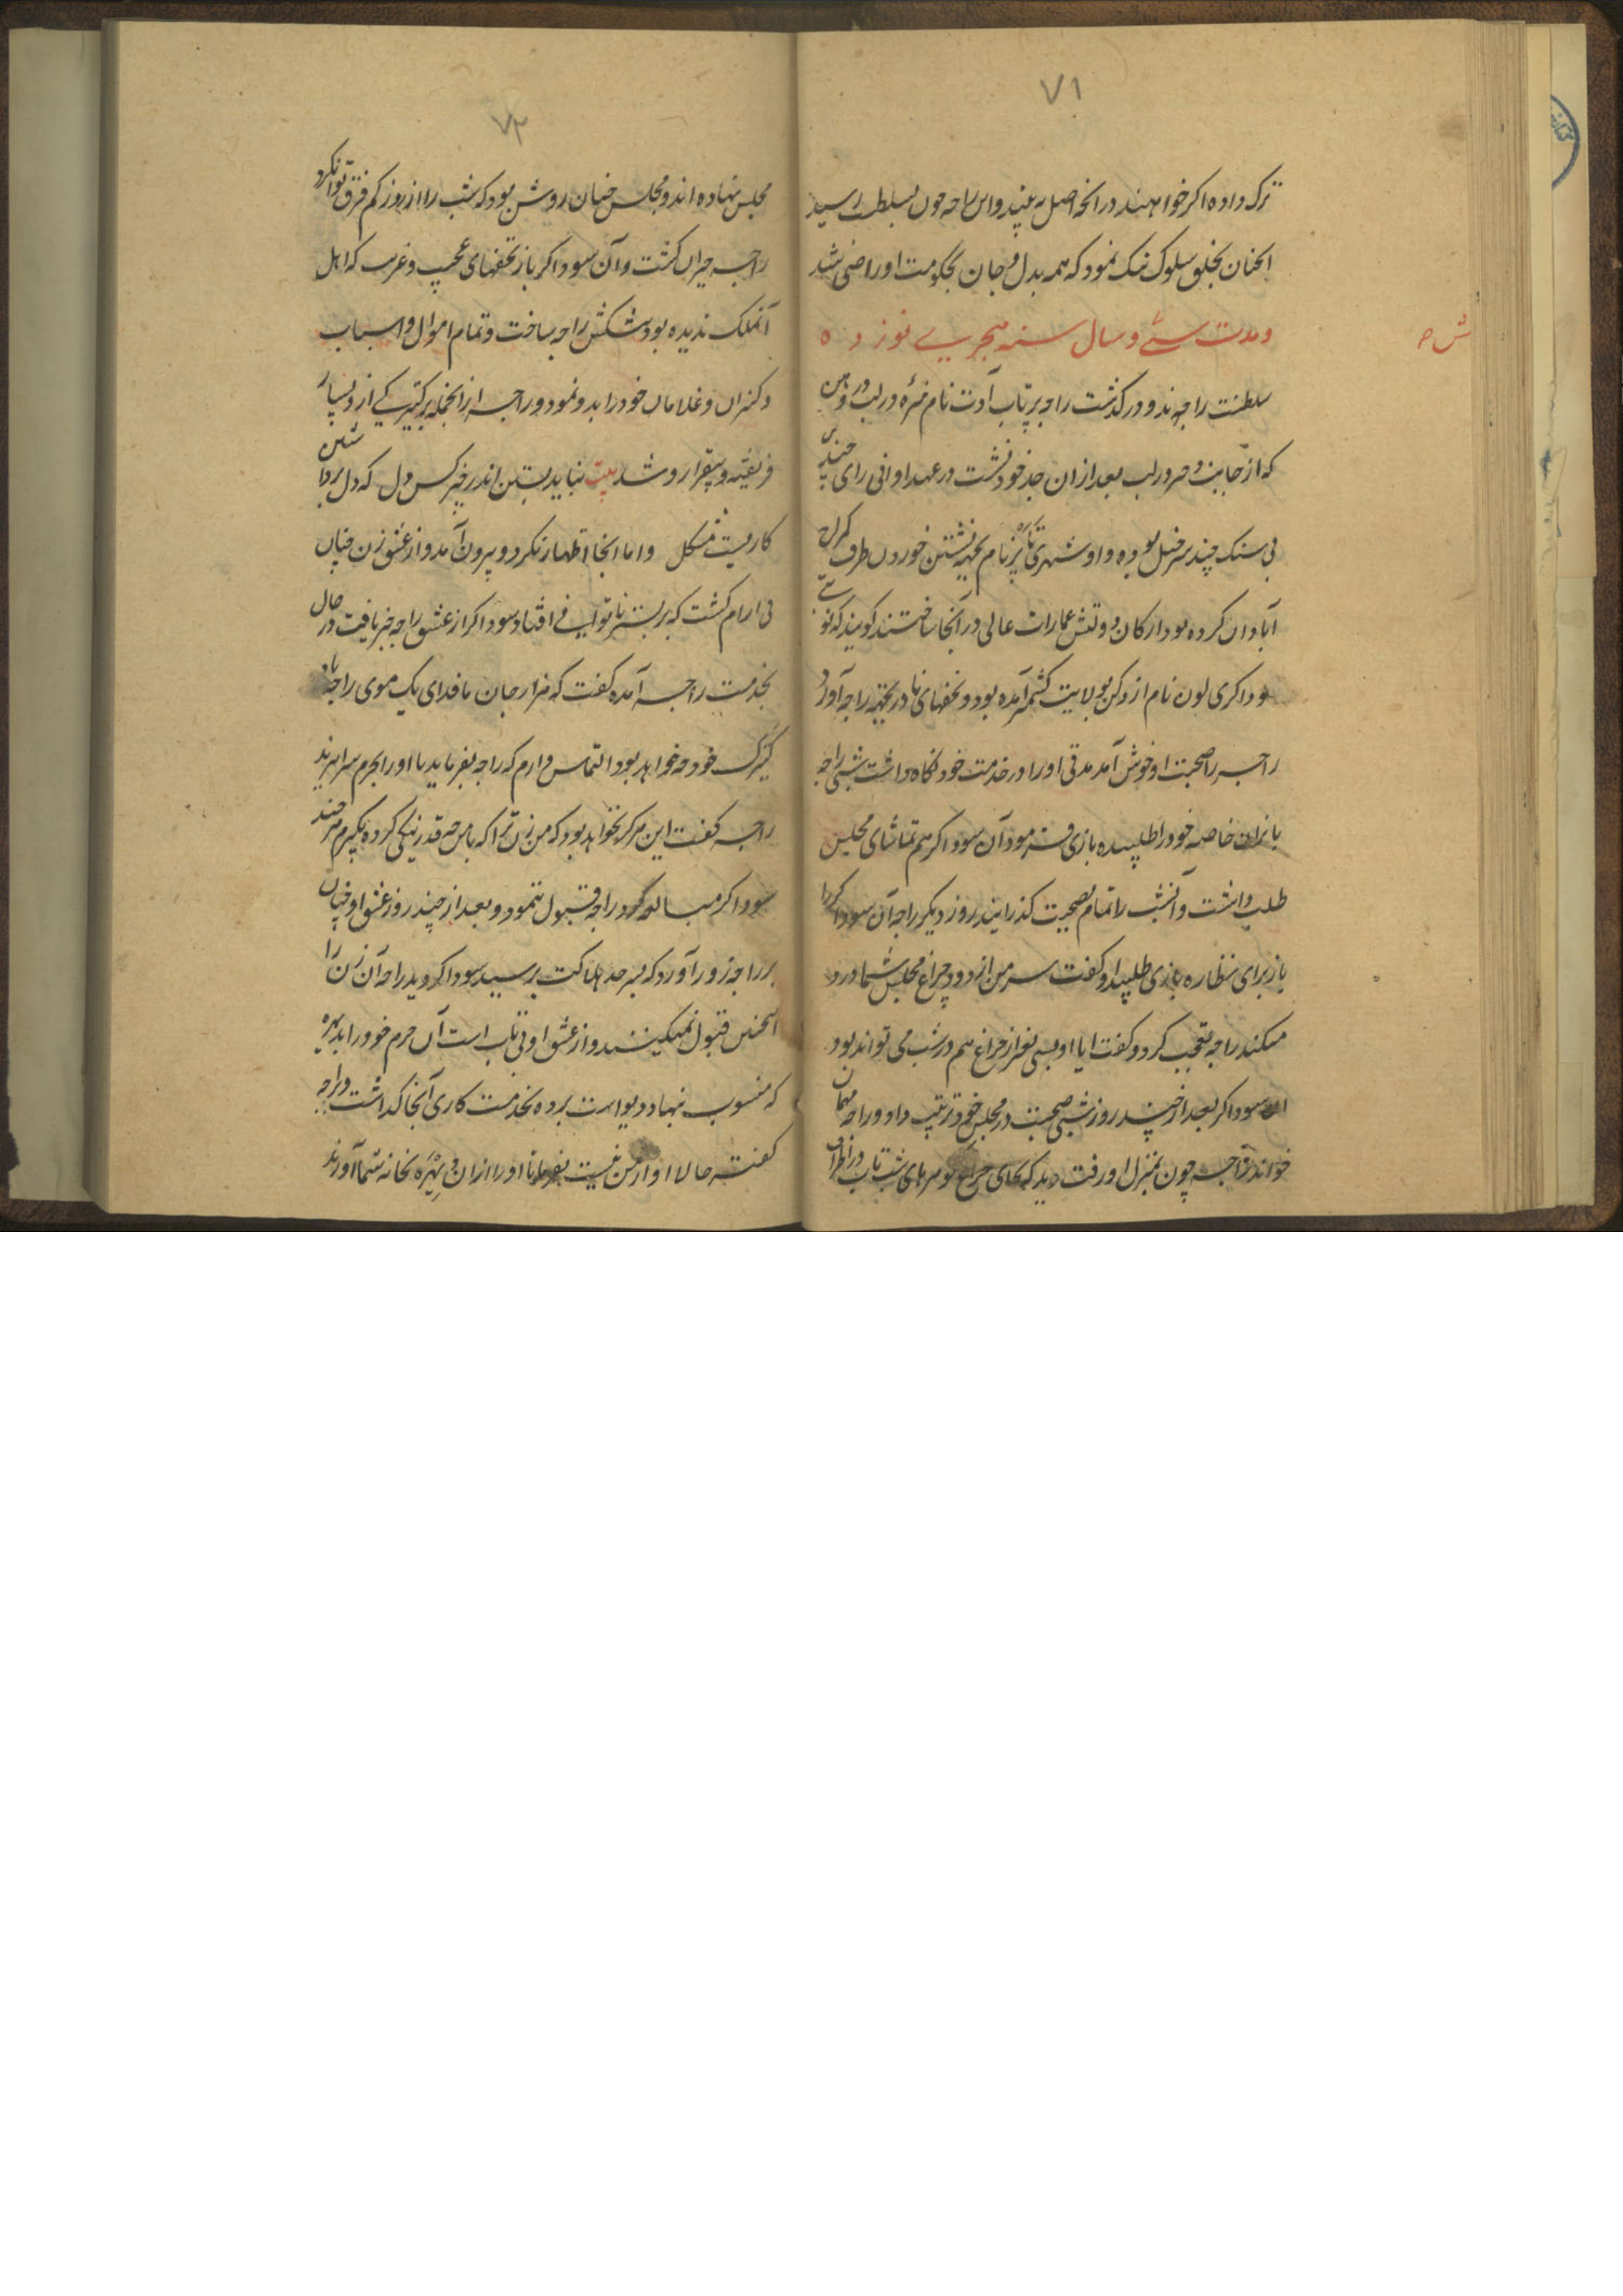 ۷۱
ترک داده اکر خواهند در انجا اصل به بیند و این راجه چون بسلطنت رسید
انچنان بخلق سلوک نیک نمود که همه بدل و جان بحکومت او راضی شد
و مدت سی و سال سنه هجری نوز و ه
سلطنت راجه ند و درکذشت راجه پرتاب آدت نام نبیره در لب
که از جانب در لب بعد از ان جد خود نشست در عهد او انی رای چند
بی سنک چند سرخیل بوده و او شهری نام بجهة نشستن خود در طرف کمراج
آبادان کرده بود ارکان دولتش عمارات عالی در آنجا ساختند کویند که نو
سوداکری لون نام از دکن بولایت کشمیر آمده بود و تحفهای نادر بجهة راجه آورد
راجه را صحبت او خوش آمد مدتی او را در خدمت خود نکاه داشت شبی راجه
بازیان خاصه خود را طلبیده بازی فرمود آن سوداکر هم تماشای مجلس
طلب داشت و آنشب را تمام بصحبت کذرایند روز دیکر راجه آن سوداکر را
باز برای نظاره بازی طلبید او کفت سر من از دود چراغ مجلس شما درد
میکند راجه تعجب کرد و کفت ایا او بسی بغیر از چراغ هم در شب می تواند بود
ان سوداکر بعد از چند روز شبی صحبت در مجلس خود ترتیب داد و راجه مهمان
خواند راجه چون بمنزل او رفت دید که بجای چراغ کوهرهای شب تاب در اطراف
ش ه
۷۲
مجلس نهاده اند و مجلس چنان روشن بود که شب را از روز کم فرق توان کرد
راجه حیران کشت و آن سوداکر باز تحفهای عجیب و غریب که اهل
آنملک ندیده بود پیشکش راجه ساخت و تمام اموال و اسباب
و کنیزان و غلامان خود را بدو نمود و راجه از انجمله بر کنیزکی از و بسیار
فریفته و بیقرار و شد بیت نباید بستن اندر چیز کس دل که دل برداشتن
کاریست مشکل و اما انجا اظهار نکرد و بیرون آمد و از عشق زن چنان
بی ارام کشت که بر بستر ناتوانی افتاد سوداکر از عشق راجه خبر یافت در حال
بخدمت راجه آمده کفت که هزار جان ما فدای یک موی راجه باد
کنیزک خود چه خواهد بود التماس دارم که راجه بفرماید تا او را بحرم سرا برند
راجه کفت این هرکز نخواهد بود که من زن ترا که بامن چه قدر نیکی کرده بکیرم هرچند
سوداکر مبالغه کرد راجه قبول ننمود و بعد از چند روز عشق او چنان
بر راجه زور آورد که بسرحد هلاکت برسید سوداکر دید راجه آن زن را
اینچنین قبول نمیکینند و از عشق او بی تاب است آن حرم خود را
که منسوب نهاد دیو است برده بخدمت کاری آنجا کذاشت و راجه
کفت حالا او از من نیست بفرما تا او را از ان بخانه شما آورند